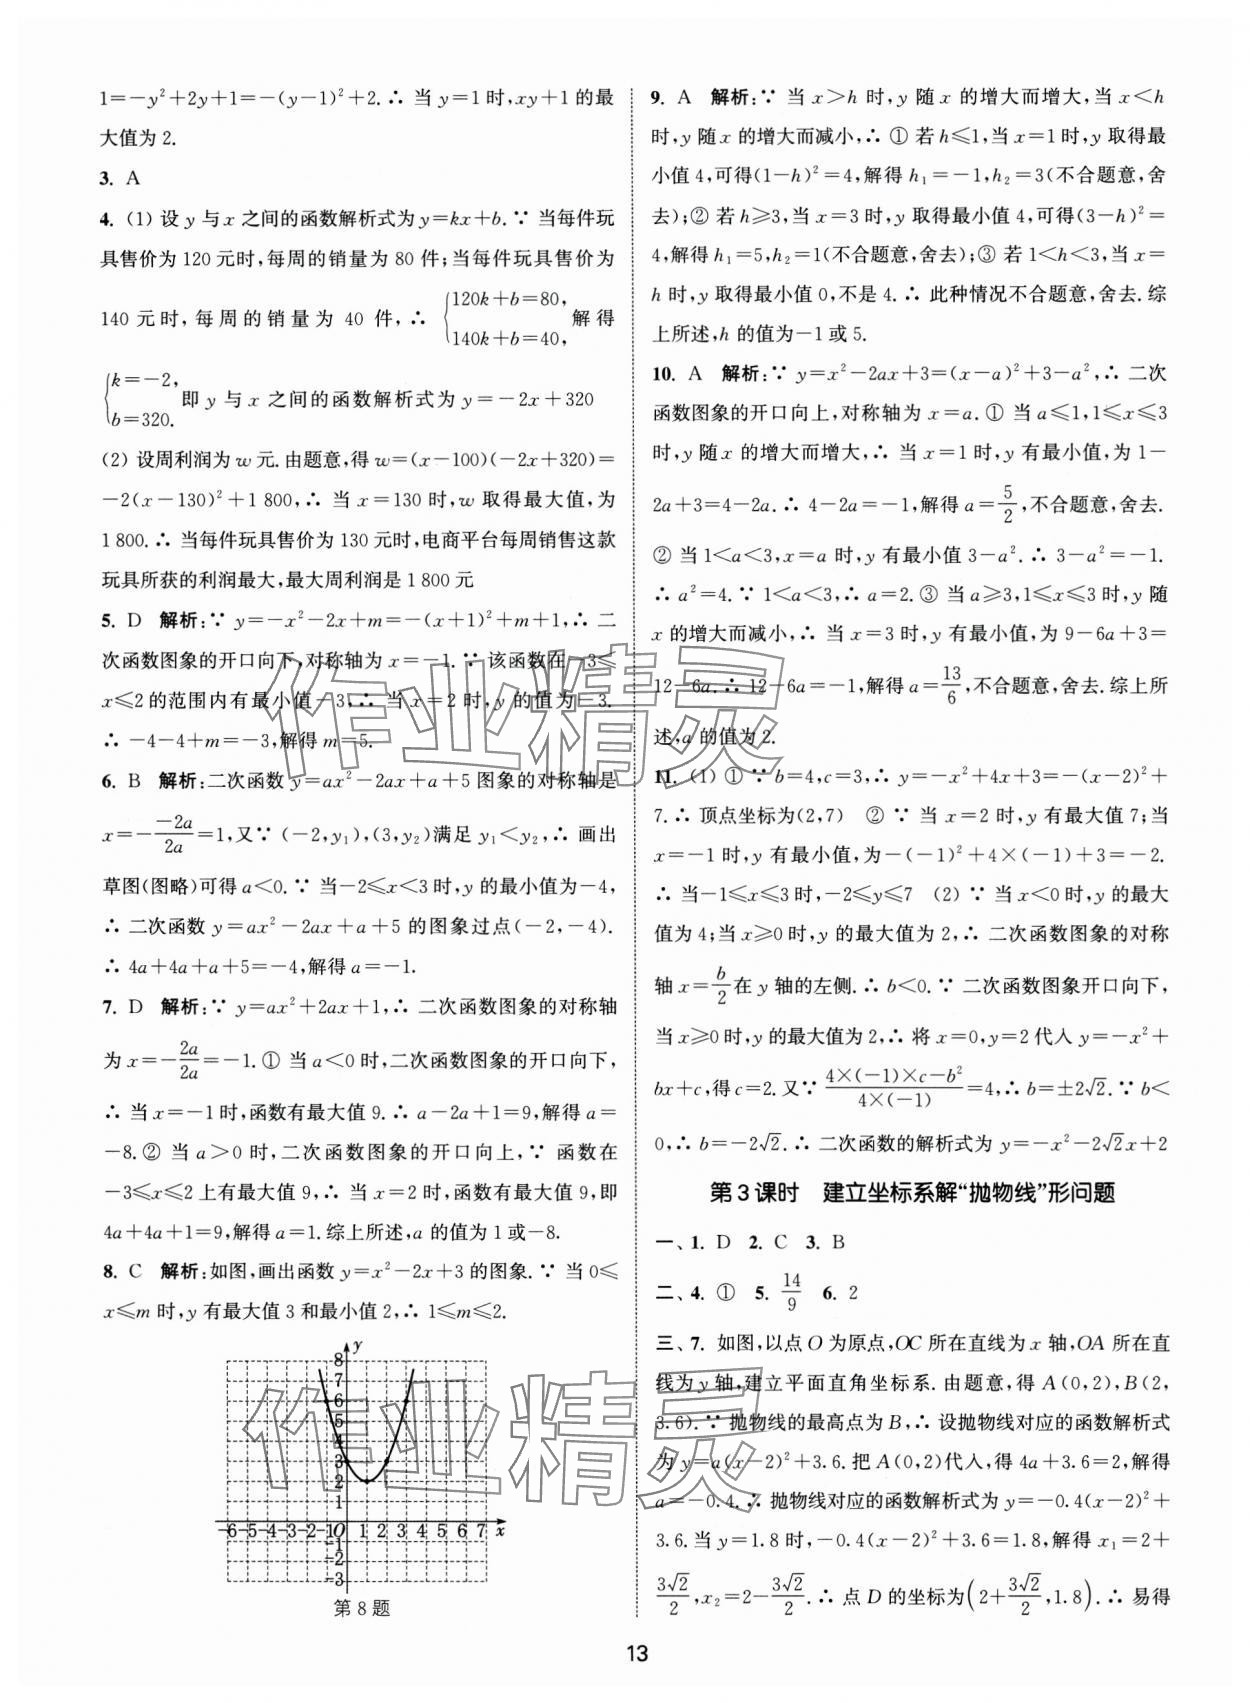 1=-y²+2y+1=-(y-1)²+2.∴ 当 y=1 时,xy+1 的最
大值为 2.
3. A
4. (1) 设 y 与 x 之间的函数解析式为 y=kx+b.∵ 当每件玩
具售价为 120 元时,每周的销量为 80 件;当每件玩具售价为
140 元时,每周的销量为 40 件,∴ {120k+b=80, 140k+b=40, 解得
{k=-2, b=320. 即 y 与 x 之间的函数解析式为 y=-2x+320
(2) 设周利润为 w 元.由题意,得 w=(x-100)(-2x+320)=
-2(x-130)²+1 800,∴ 当 x=130 时,w 取得最大值,为
1 800.∴ 当每件玩具售价为 130 元时,电商平台每周销售这款
玩具所获的利润最大,最大周利润是 1 800 元
5. D 解析:∵ y=-x²-2x+m=-(x+1)²+m+1,∴ 二
次函数图象的开口向下,对称轴为 x=-1.∵ 该函数在-3≤
x≤2 的范围内有最小值-3,∴ 当 x=2 时,y 的值为-3.
∴ -4-4+m=-3,解得 m=5.
6. B 解析:二次函数 y=ax²-2ax+a+5 图象的对称轴是
x=-\frac{-2a}{2a}=1,又∵ (-2,y₁),(3,y₂)满足 y₁<y₂,∴ 画出
草图(图略)可得 a<0.∵ 当-2≤x<3 时,y 的最小值为-4,
∴ 二次函数 y=ax²-2ax+a+5 的图象过点(-2,-4).
∴ 4a+4a+a+5=-4,解得 a=-1.
7. D 解析:∵ y=ax²+2ax+1,∴ 二次函数图象的对称轴
为 x=-\frac{2a}{2a}=-1.① 当 a<0 时,二次函数图象的开口向下,
∴ 当 x=-1 时,函数有最大值 9.∴ a-2a+1=9,解得 a=
-8.② 当 a>0 时,二次函数图象的开口向上,∵ 函数在
-3≤x≤2 上有最大值 9,∴ 当 x=2 时,函数有最大值 9,即
4a+4a+1=9,解得 a=1.综上所述,a 的值为 1 或-8.
8. C 解析:如图,画出函数 y=x²-2x+3 的图象.∵ 当 0≤
x≤m 时,y 有最大值 3 和最小值 2,∴ 1≤m≤2.
y
8
7
6
5
4
3
2
1
-6-5-4-3-2-1O 1 2 3 4 5 6 7 x
-1
-2
-3
第 8 题
9. A 解析:∵ 当 x>h 时,y 随 x 的增大而增大,当 x<h
时,y 随 x 的增大而减小,∴ ① 若 h≤1,当 x=1 时,y 取得最
小值 4,可得(1-h)²=4,解得 h₁=-1,h₂=3(不合题意,舍
去);② 若 h≥3,当 x=3 时,y 取得最小值 4,可得(3-h)²=
4,解得 h₁=5,h₂=1(不合题意,舍去);③ 若 1<h<3,当 x=
h 时,y 取得最小值 0,不是 4.∴ 此种情况不合题意,舍去.综
上所述,h 的值为-1 或 5.
10. A 解析:∵ y=x²-2ax+3=(x-a)²+3-a²,∴ 二次
函数图象的开口向上,对称轴为 x=a.① 当 a≤1,1≤x≤3
时,y 随 x 的增大而增大,∴ 当 x=1 时,y 有最小值,为 1-
2a+3=4-2a.∴ 4-2a=-1,解得 a=\frac{5}{2},不合题意,舍去.
② 当 1<a<3,x=a 时,y 有最小值 3-a².∴ 3-a²=-1.
∴ a²=4.∵ 1<a<3,∴ a=2.③ 当 a≥3,1≤x≤3 时,y 随
x 的增大而减小,∴ 当 x=3 时,y 有最小值,为 9-6a+3=
12-6a.∴ 12-6a=-1,解得 a=\frac{13}{6},不合题意,舍去.综上所
述,a 的值为 2.
11. (1) ① ∵ b=4,c=3,∴ y=-x²+4x+3=-(x-2)²+
7.∴ 顶点坐标为(2,7) ② ∵ 当 x=2 时,y 有最大值 7;当
x=-1 时,y 有最小值,为-(-1)²+4×(-1)+3=-2.
∴ 当-1≤x≤3 时,-2≤y≤7 (2) ∵ 当 x<0 时,y 的最大
值为 4;当 x≥0 时,y 的最大值为 2,∴ 二次函数图象的对称
轴 x=\frac{b}{2}在 y 轴的左侧.∴ b<0.∵ 二次函数图象开口向下,
当 x≥0 时,y 的最大值为 2,∴ 将 x=0,y=2 代入 y=-x²+
bx+c,得 c=2.又∵ \frac{4×(-1)×c-b²}{4×(-1)}=4,∴ b=±2√2.∵ b<
0,∴ b=-2√2.∴ 二次函数的解析式为 y=-x²-2√2x+2
第 3 课时 建立坐标系解“抛物线”形问题
一、1. D 2. C 3. B
二、4. ① 5. \frac{14}{9} 6. 2
三、7. 如图,以点 O 为原点,OC 所在直线为 x 轴,OA 所在直
线为 y 轴,建立平面直角坐标系.由题意,得 A(0,2),B(2,
3.6).∵ 抛物线的最高点为 B,∴ 设抛物线对应的函数解析式
为 y=a(x-2)²+3.6.把 A(0,2)代入,得 4a+3.6=2,解得
a=-0.4.∴ 抛物线对应的函数解析式为 y=-0.4(x-2)²+
3.6.当 y=1.8 时,-0.4(x-2)²+3.6=1.8,解得 x₁=2+
\frac{3√2}{2},x₂=2-\frac{3√2}{2}.∴ 点 D 的坐标为(2+\frac{3√2}{2},1.8).∴ 易得
13
作业精灵
作业精灵